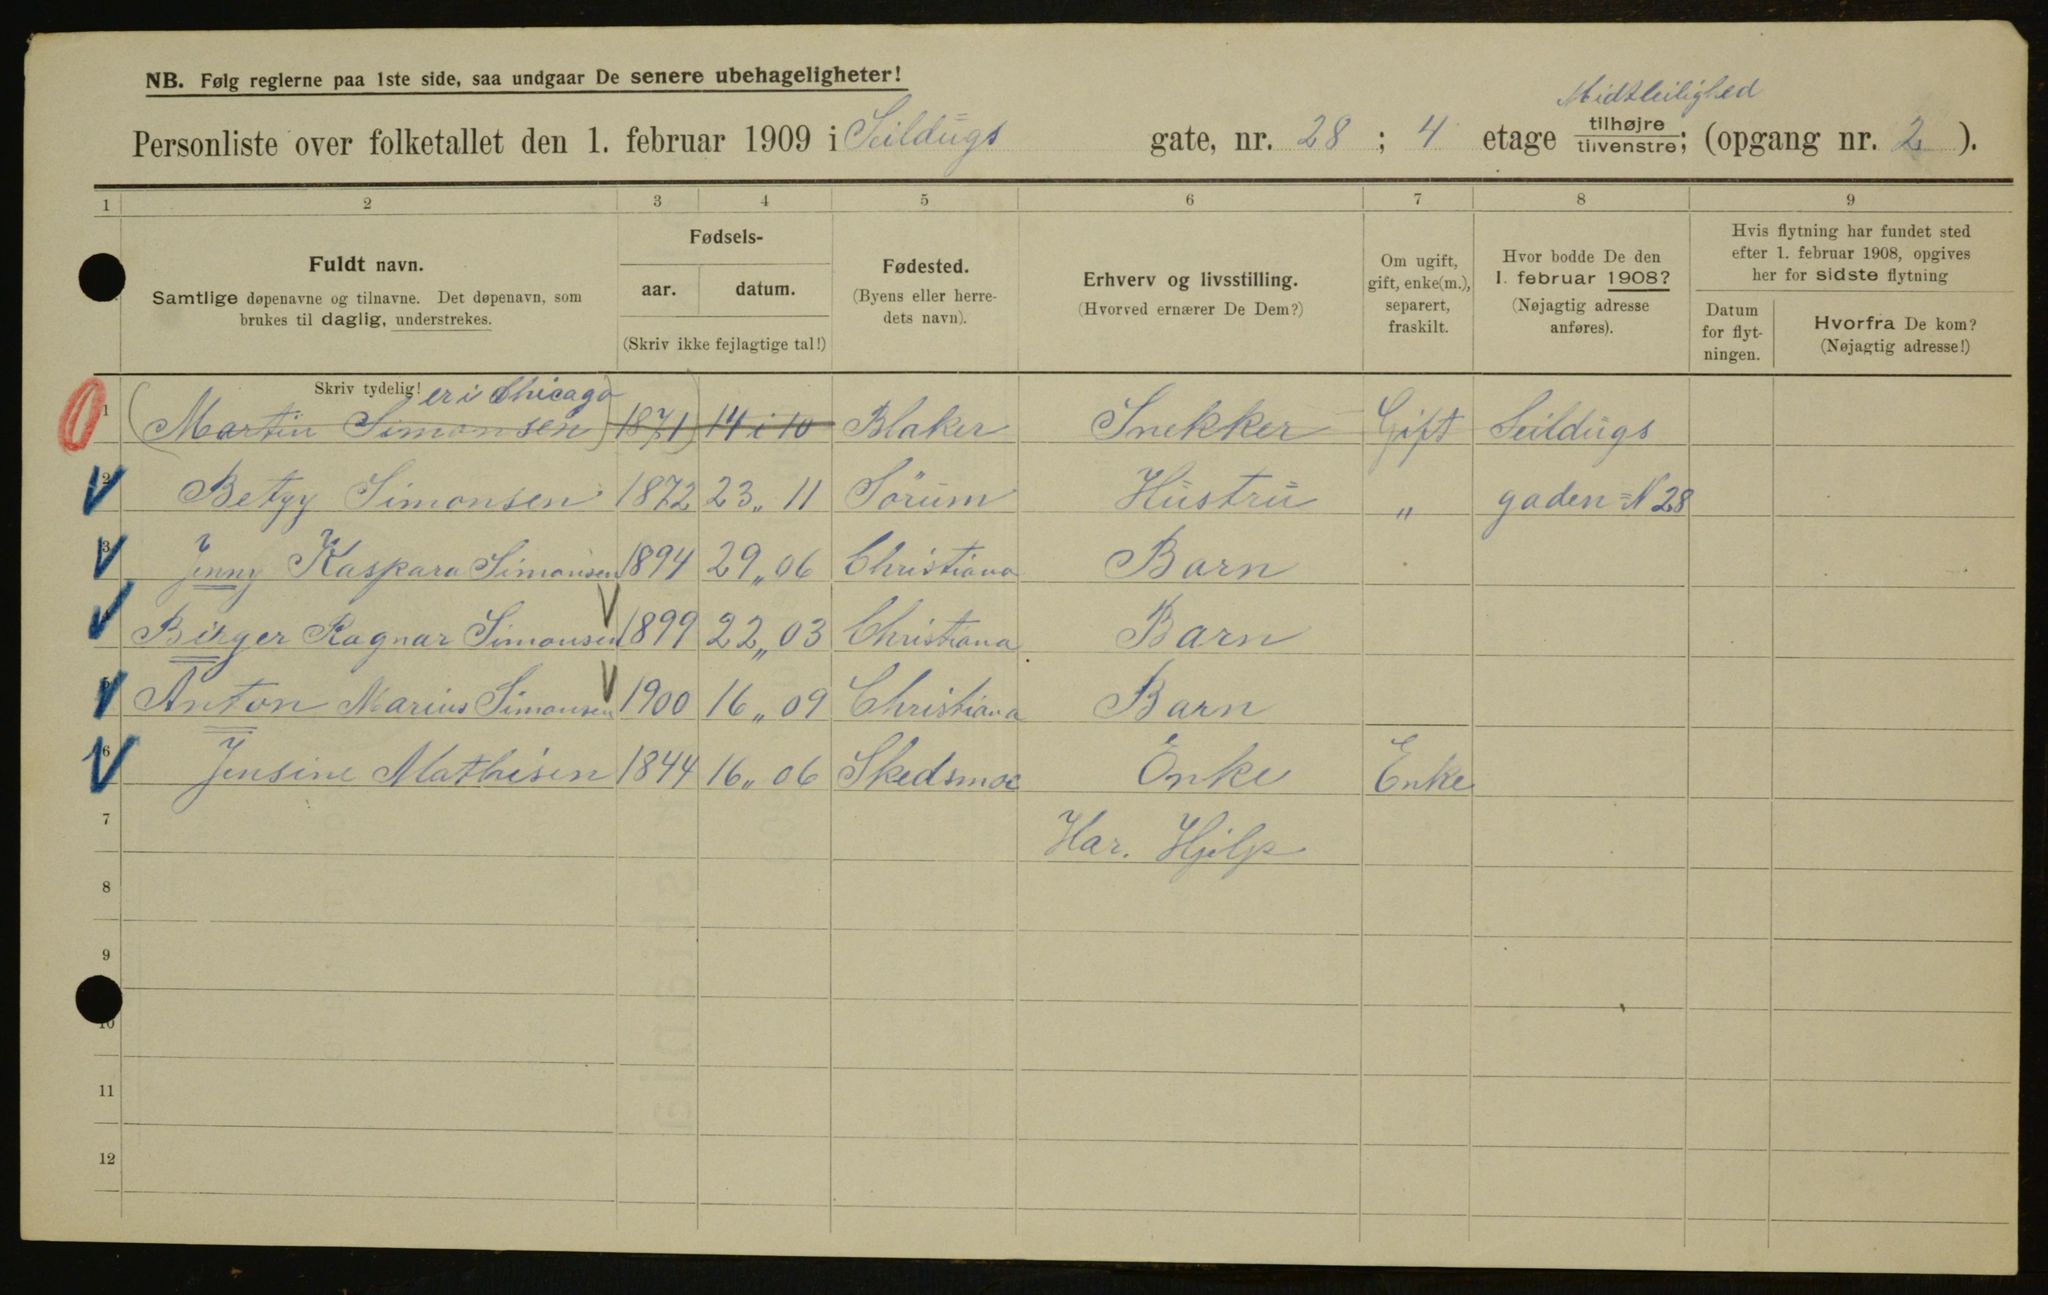 NB. Følg reglerne paa 1ste side, saa undgaar De senere ubehageligheter!
Midtleilighed
Personliste over folketallet den 1. februar 1909 i Seildugs gate, nr. 28 ; 4 etage tilhøjre tilvenstre; (opgang nr. 2 ).
1 2 3 4 5 6 7 8 9
Fuldt navn.
Samtlige døpenavne og tilnavne. Det døpenavn, som
brukes til daglig, understrekes.
Fødsels-
aar. datum.
(Skriv ikke fejlagtige tal!)
Fødested.
(Byens eller herre-
dets navn).
Erhverv og livsstilling.
(Hvorved ernærer De Dem?)
Om ugift,
gift, enke(m.),
separert,
fraskilt.
Hvor bodde De den
1. februar 1908?
(Nøjagtig adresse
anføres).
Hvis flytning har fundet sted
efter 1. februar 1908, opgives
her for sidste flytning
Datum
for flyt-
ningen.
Hvorfra De kom?
(Nøjagtig adresse!)
Skriv tydelig! er i Chicago
1 (Martin Simonsen) 1871) 14 i 10 Blaker Snekker Gift Seildugs
2 Betzy Simonsen 1872 23 „ 11 Sörum Hustru „ gaden N 28
3 Jenny Kaspara Simonsen 1894 29 „ 06 Christiana Barn
4 Birger Ragnar Simonsen 1899 22 „ 03 Christiana Barn
5 Anton Marius Simonsen 1900 16 „ 09 Christiana Barn
6 Jensine Mathisen 1844 16 „ 06 Skedsmoe Enke Enke
7 Har. Hjelp
8
9
10
11
12